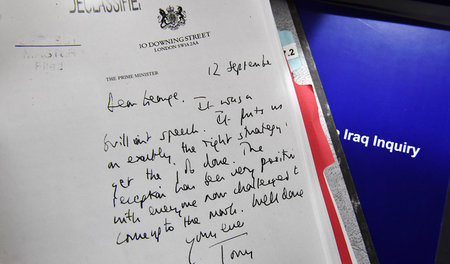 DECLASSIFIED
10 DOWNING STREET
LONDON SW1A 2AA
THE PRIME MINISTER
12 September
Dear George,
It was a
brilliant speech. It puts us
on exactly the right strategy,
to get the job done. The
reception has been very positive
with everyone now challenged to
come up to the mark. Well done
Yours ever
Tony
.2
Iraq Inquiry